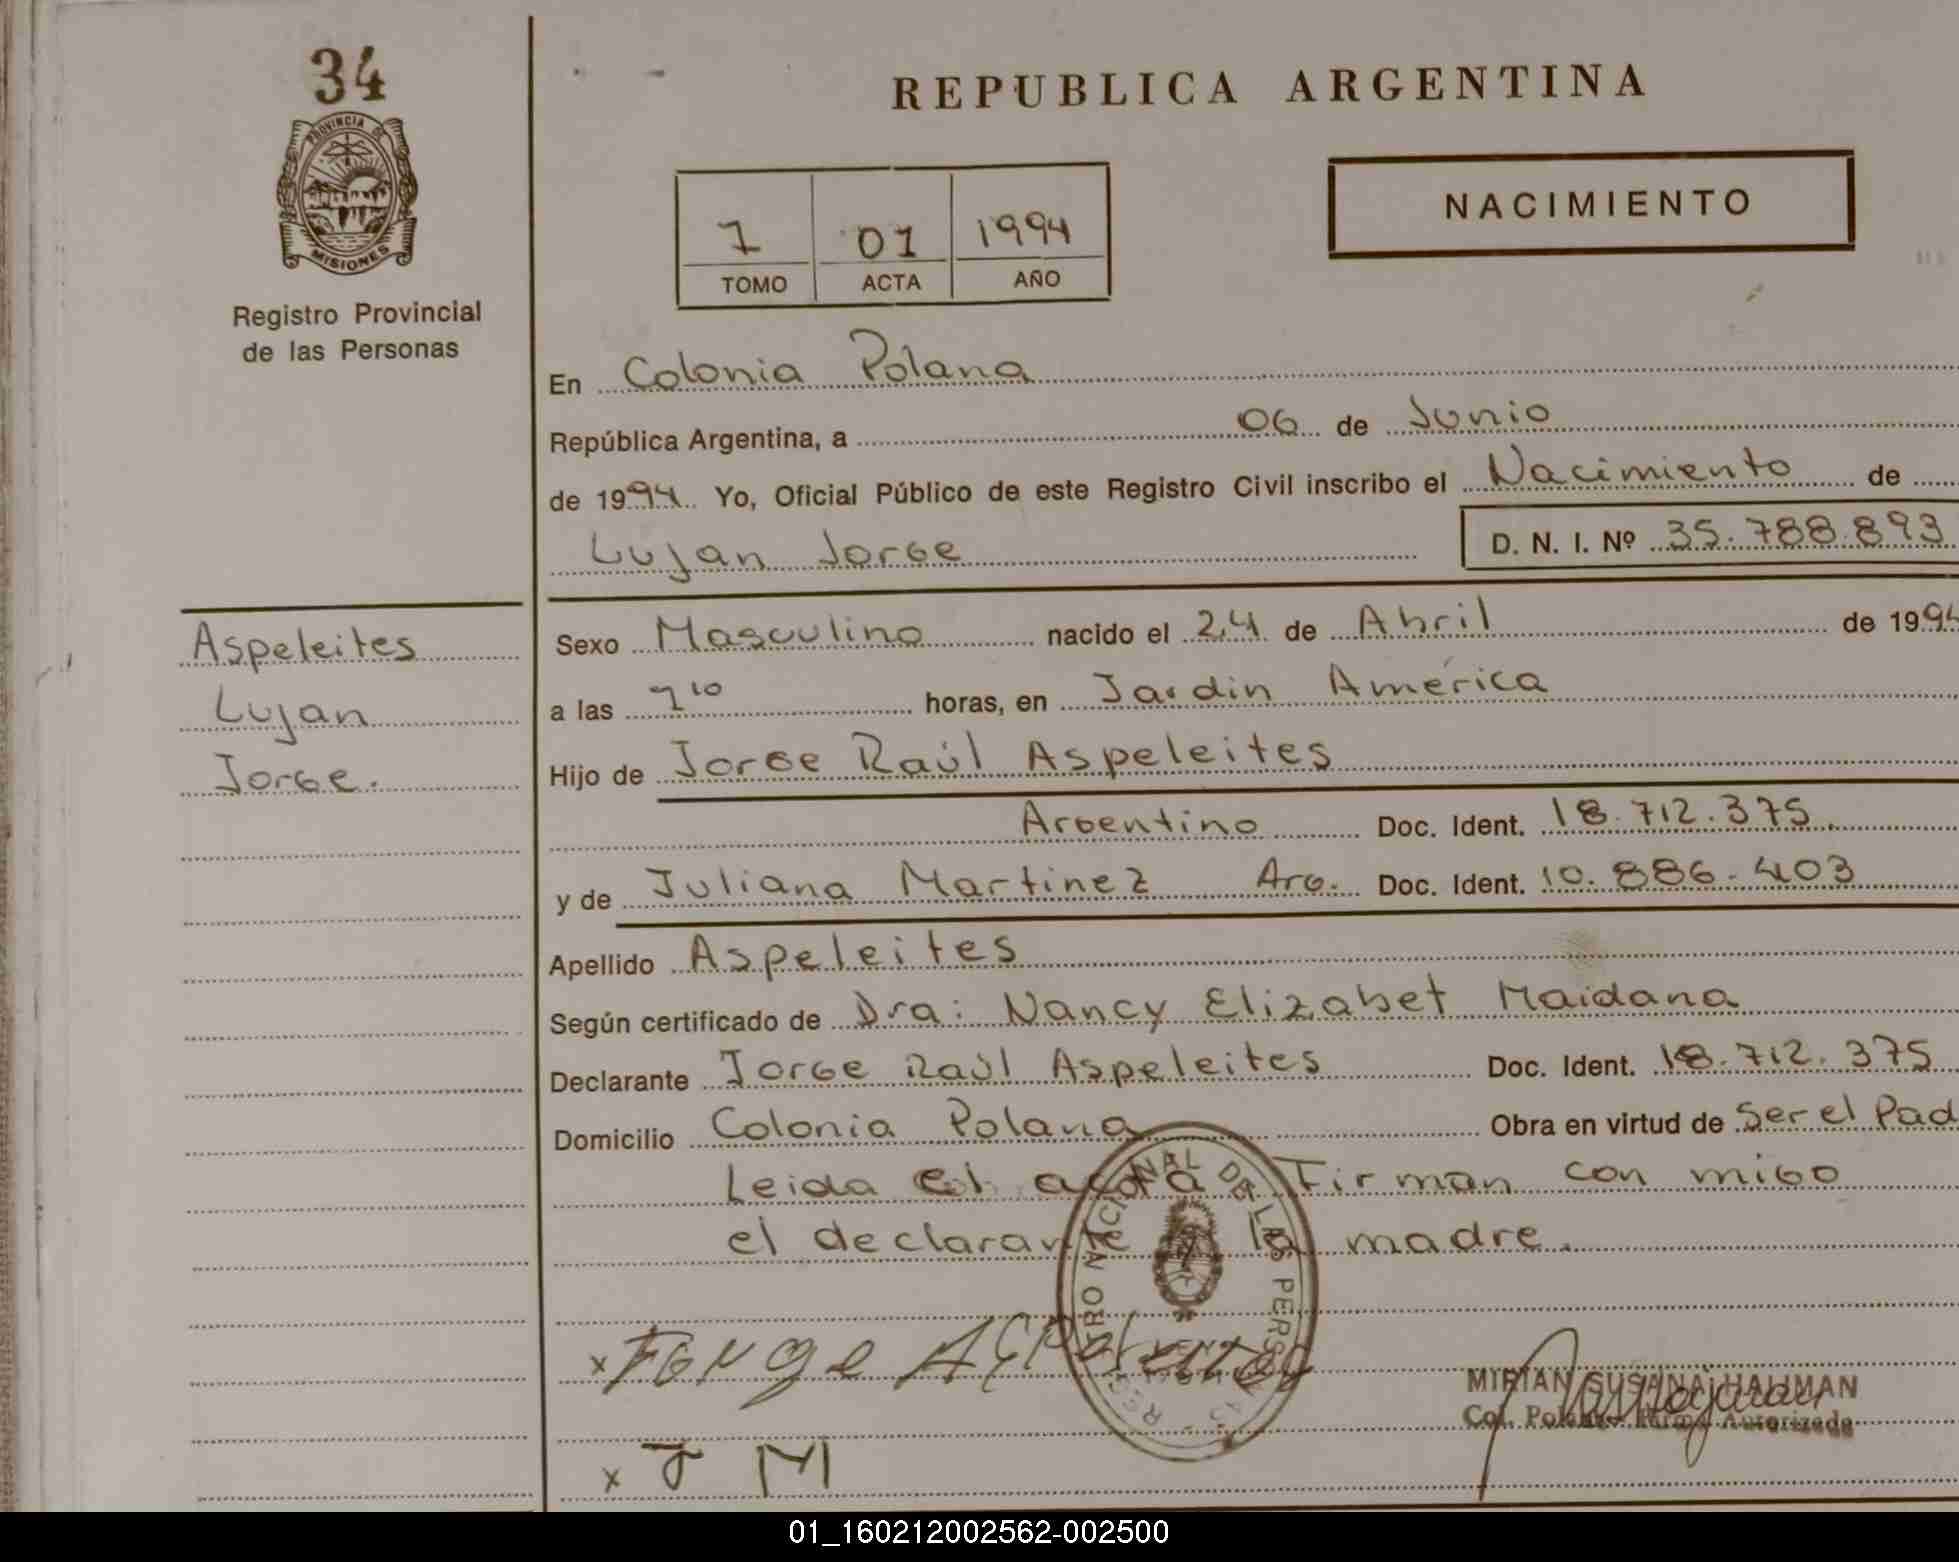 34
PROVINCIA DE
MISIONES
Registro Provincial
de las Personas
REPUBLICA ARGENTINA
7 01 1994
TOMO ACTA AÑO
NACIMIENTO
En Colonia Polana
República Argentina, a 06 de Junio
de 1994 Yo, Oficial Público de este Registro Civil inscribo el Nacimiento de
Lujan Jorge D. N. I. Nº 35.788.893
Aspeleites
Lujan
Jorge.
Sexo Masculino nacido el 24 de Abril de 1994
a las 7¹⁰ horas, en Jardin América
Hijo de Jorge Raúl Aspeleites
Argentino Doc. Ident. 18.712.375.
y de Juliana Martinez Arg. Doc. Ident. 10.886.403
Apellido Aspeleites
Según certificado de Dra: Nancy Elizabet Maidana
Declarante Jorge Raúl Aspeleites Doc. Ident. 18.712.375
Domicilio Colonia Polana Obra en virtud de Ser el Pad
Leida el acta Firman con migo
el declarante la madre.
NACIONAL DE LAS PERSONAS
x J M
MIRIAN SUSANA HAUMAN
Col. Polana Firma Autorizada
01_160212002562-002500